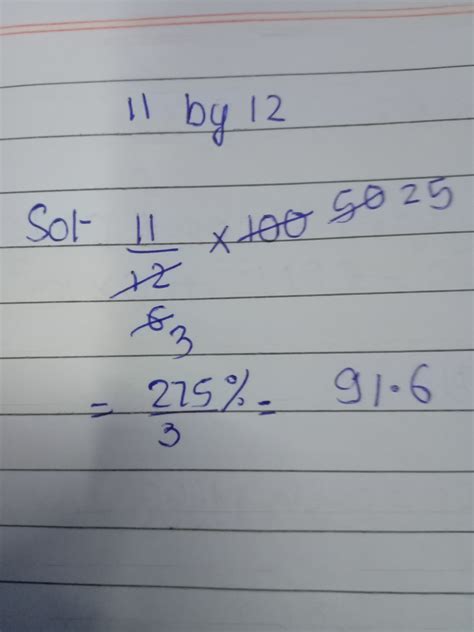 11 by 12
Sol- 11/12 × 100 50 25
6 3
= 275/3 % = 91.6